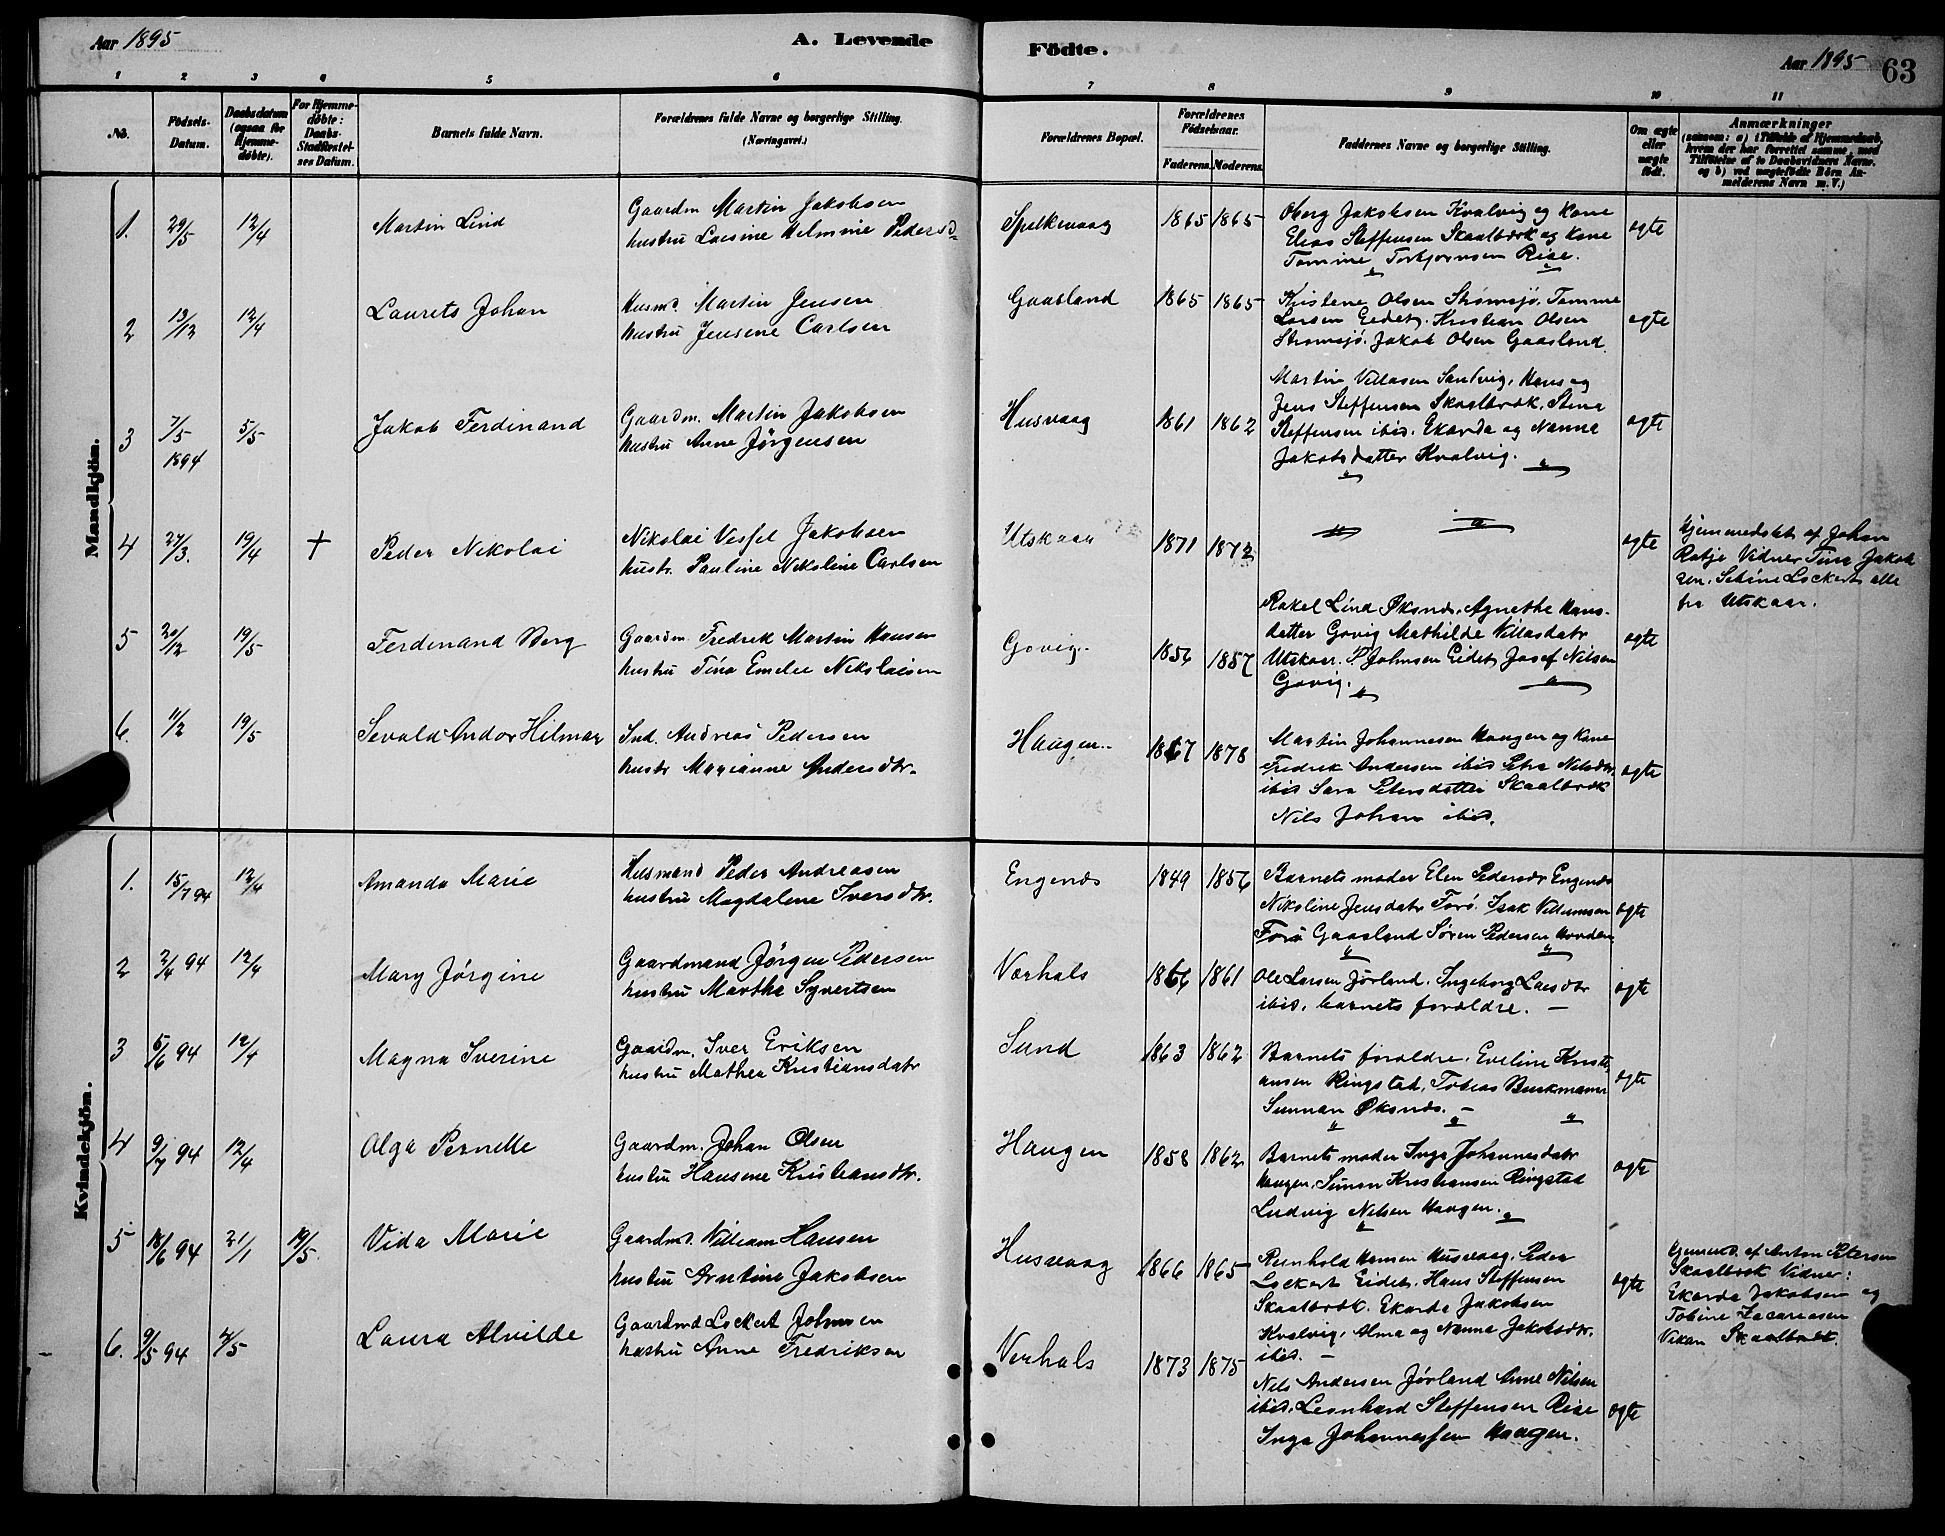 Aar 1895
A. Levende
Födte.
Aar 1895
63
1 2 3 4 5 6 7 8 9 10 11
No.
Födsels-Datum.
Daabsdatum (ogsaa for Hjemme-døbte).
For Hjemme-døbte: Daabs-Stadfæstelses Datum.
Barnets fulde Navn.
Forældrenes fulde Navne og borgerlige Stilling. (Næringsvei.)
Forældrenes Bopæl.
Forældrenes Födselsaar.
Faderens. Moderens.
Faddernes Navne og borgerlige Stilling.
Om ægte eller uægte født.
Anmærkninger
(saasom: a) i Tilfælde af Hjemmedaab, hvem der har forrettet samme, med Tilföielse af to Daabsvidners Navne. og b) ved uægtefødte Börn Anmelderens Navn m. V.)
Mandkjön.
1. 29/5 12/4 Martin Lind
Gaardm Martin Jakobsen
hustru Helmine Pedersd
1865 1865
Jakobsen Kvalvig og Kone
Elias Steffensen Skaalbrok og Kone
Tomine Torbjørnsen Rise.
ægte
2 13/12 12/4 Laurits Johan
Husmd. Martin Jensen
hustru Jensine Carlsen
Gaasland 1865 1865
Kristene Olsen Strømsjø, Tomine
Larsen Eidet. Kristian Olsen
Strømsjø. Jakob Olsen Gaasland
ægte
3 7/5 1894 5/5 Jakob Ferdinand
Gaardm. Martin Jakobsen
hustru Anne Jørgensen
Husvaag 1861 1862
Martin Villasen Sandvig, Hans og
Jens Steffensen Skaalbrok, Stina
Steffensen ibid. Ekarda og Nanna
Jakobsdatter Kvalvig.
ægte
4 27/3. 19/4 + Peder Nikolai
Nikolai Jakobsen
hustr. Pauline Nikoline Carlsen
Utskaar 1871 1872
ægte
Hjemmedøbt af Johan
Ratje Vidner Tina Jakob
sen, Lockert alle
fra Utskaar.
5 20/12 19/5 Ferdinand Berg
Gaardm. Fredrik Martin Hansen
hustru Tina Emelie Nikolaisen
Govig. 1856 1857
Rakel Lind Øksnes. Agnethe Hans-
datter Govig Mathilde Villasdatr
Utskaar. P. Johnsen Eidet Josef Nilsen
Govig.
ægte
6. 11/2 19/5 Sevald Andor Hilmar
Ind. Andreas Pedersen
hustr Marianne Andersdtr.
Haugen. 1867 1878
Martin Johannesen Haugen og Kone
Fredrik Andersen ibid Petra Nilsdtr
ibid Sara Petersdatter Skaalbrok
Nils Johan ibid.
ægte
Kvindekjön.
1. 15/7 94 12/4 Amanda Marie
Husmand Peder Andreasen
hustru Magdalene Iversdtr.
Engenes 1849 1856
Barnets moder Elen Pedersdr Engenes
Nikoline Jensdatr Forø. Isak Villumsen
Forø Gaasland Søren Pedersen
ægte
2 2/4 94 12/4 Mary Jørgine
Gaardmand Jørgen Pedersen
hustru Martha Syvertsen
Værhals 1861
Ole Larsen Jørland. Ingeborg Larsdtr
ibid. barnets forældre. —
ægte
3 5/6 94 12/4 Magna Iverine
Gaardm. Iver Eriksen
hustru Mathea Kristiansdatr
Sund 1863 1862
Barnets forældre. Eveline Kristi
ansen Ringstad, Tobias Benkmann
Sunnan Øksnes. —
ægte
4 9/7 94 12/4 Olga Pernelle
Gaardm. Johan Olsen
hustru Hansine Kristiansdtr.
Haugen 1858 1862
Barnets moder Inga Johannesdatr
Haugen. Simon Kristiansen Ringstad
Ludvig Nilsen Haugen.
ægte
5 18/6 94 21/1 19/5. Vida Marie
Gaardmd. William Hansen
hustru Arntine Jakobsen
Husvaag 1866 1865
Reinhold Hansen Husvaag. Peder
Lockert Eidet. Hans Steffensen
Skaalbrok. Ekarda Jakobsen
Kvalvig. Alma og Nanna Jakobsdtr.
ibid. —
ægte
Hjemmd. af Anton Petersen
Skaalbrok Vidner:
Ekarda Jakobsen og
Tobine Zacariasen
Vikan Skaalbrok.
6. 9/5 94 Laura Alvilde
Gaardmd Lockert Johnsen
hustru Anne Fredriksen
Verhals 1873 1875
Nils Andersen Jørland Anne Nilsen
ibid. Leonhard Steffensen Rise
Inga Johannessen Haugen.
ægte